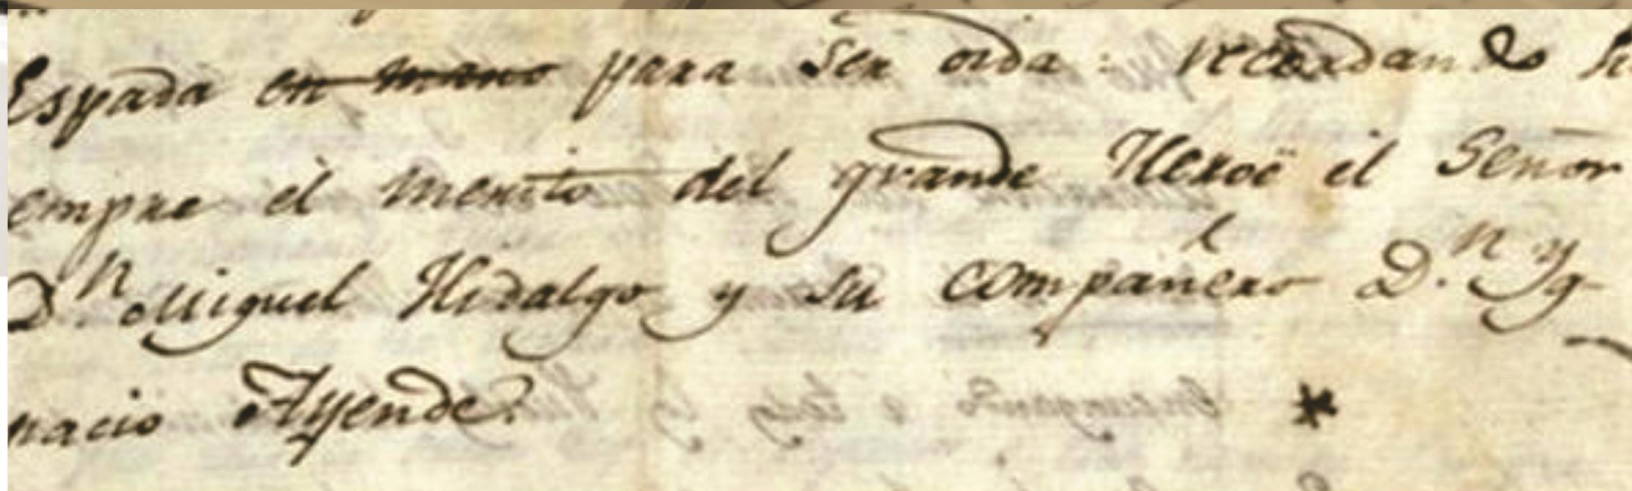 Espada en mano para ser oida: recordando si
empre el merito del grande Heroe el Señor
D.n Miguel Hidalgo y su compañero D.n Yg-
nacio Ayende.
*